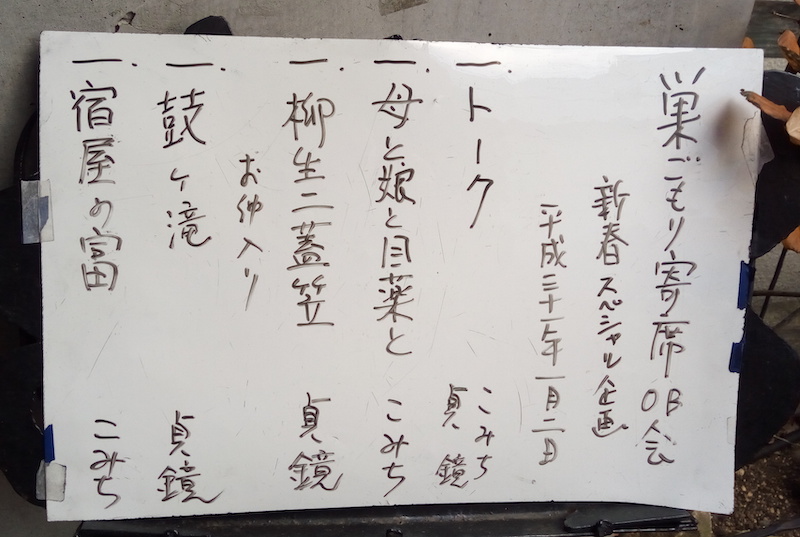 巣ごもり寄席OB会
新春スペシャル企画
平成三十一年一月二日
一.トーク こみち
貞鏡
一.母と娘と目薬と こみち
一.柳生二蓋笠 貞鏡
お仲入り
一.鼓ケ滝 貞鏡
一.宿屋の富 こみち